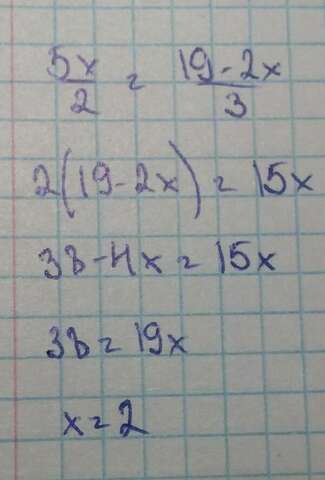 5x/2 = 19-2x/3
2(19-2x) = 15x
38-4x = 15x
38 = 19x
x = 2